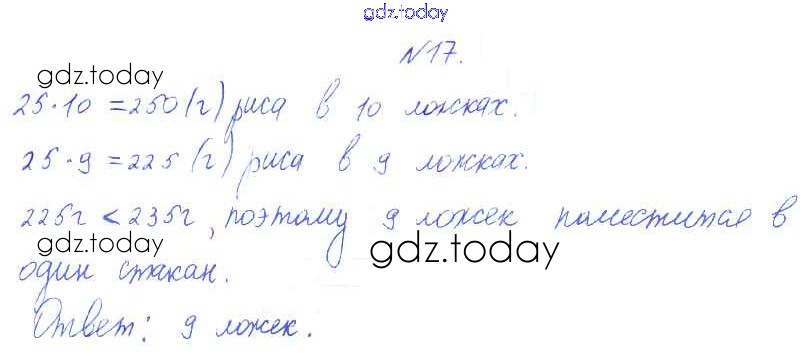 gdz.today
N17.
gdz.today
25·10 = 250 (г) риса в 10 ложках.
25·9 = 225 (г) риса в 9 ложках.
gdz.today
225г < 235г, поэтому 9 ложек поместится в
gdz.today
gdz.today
один стакан.
Ответ: 9 ложек.